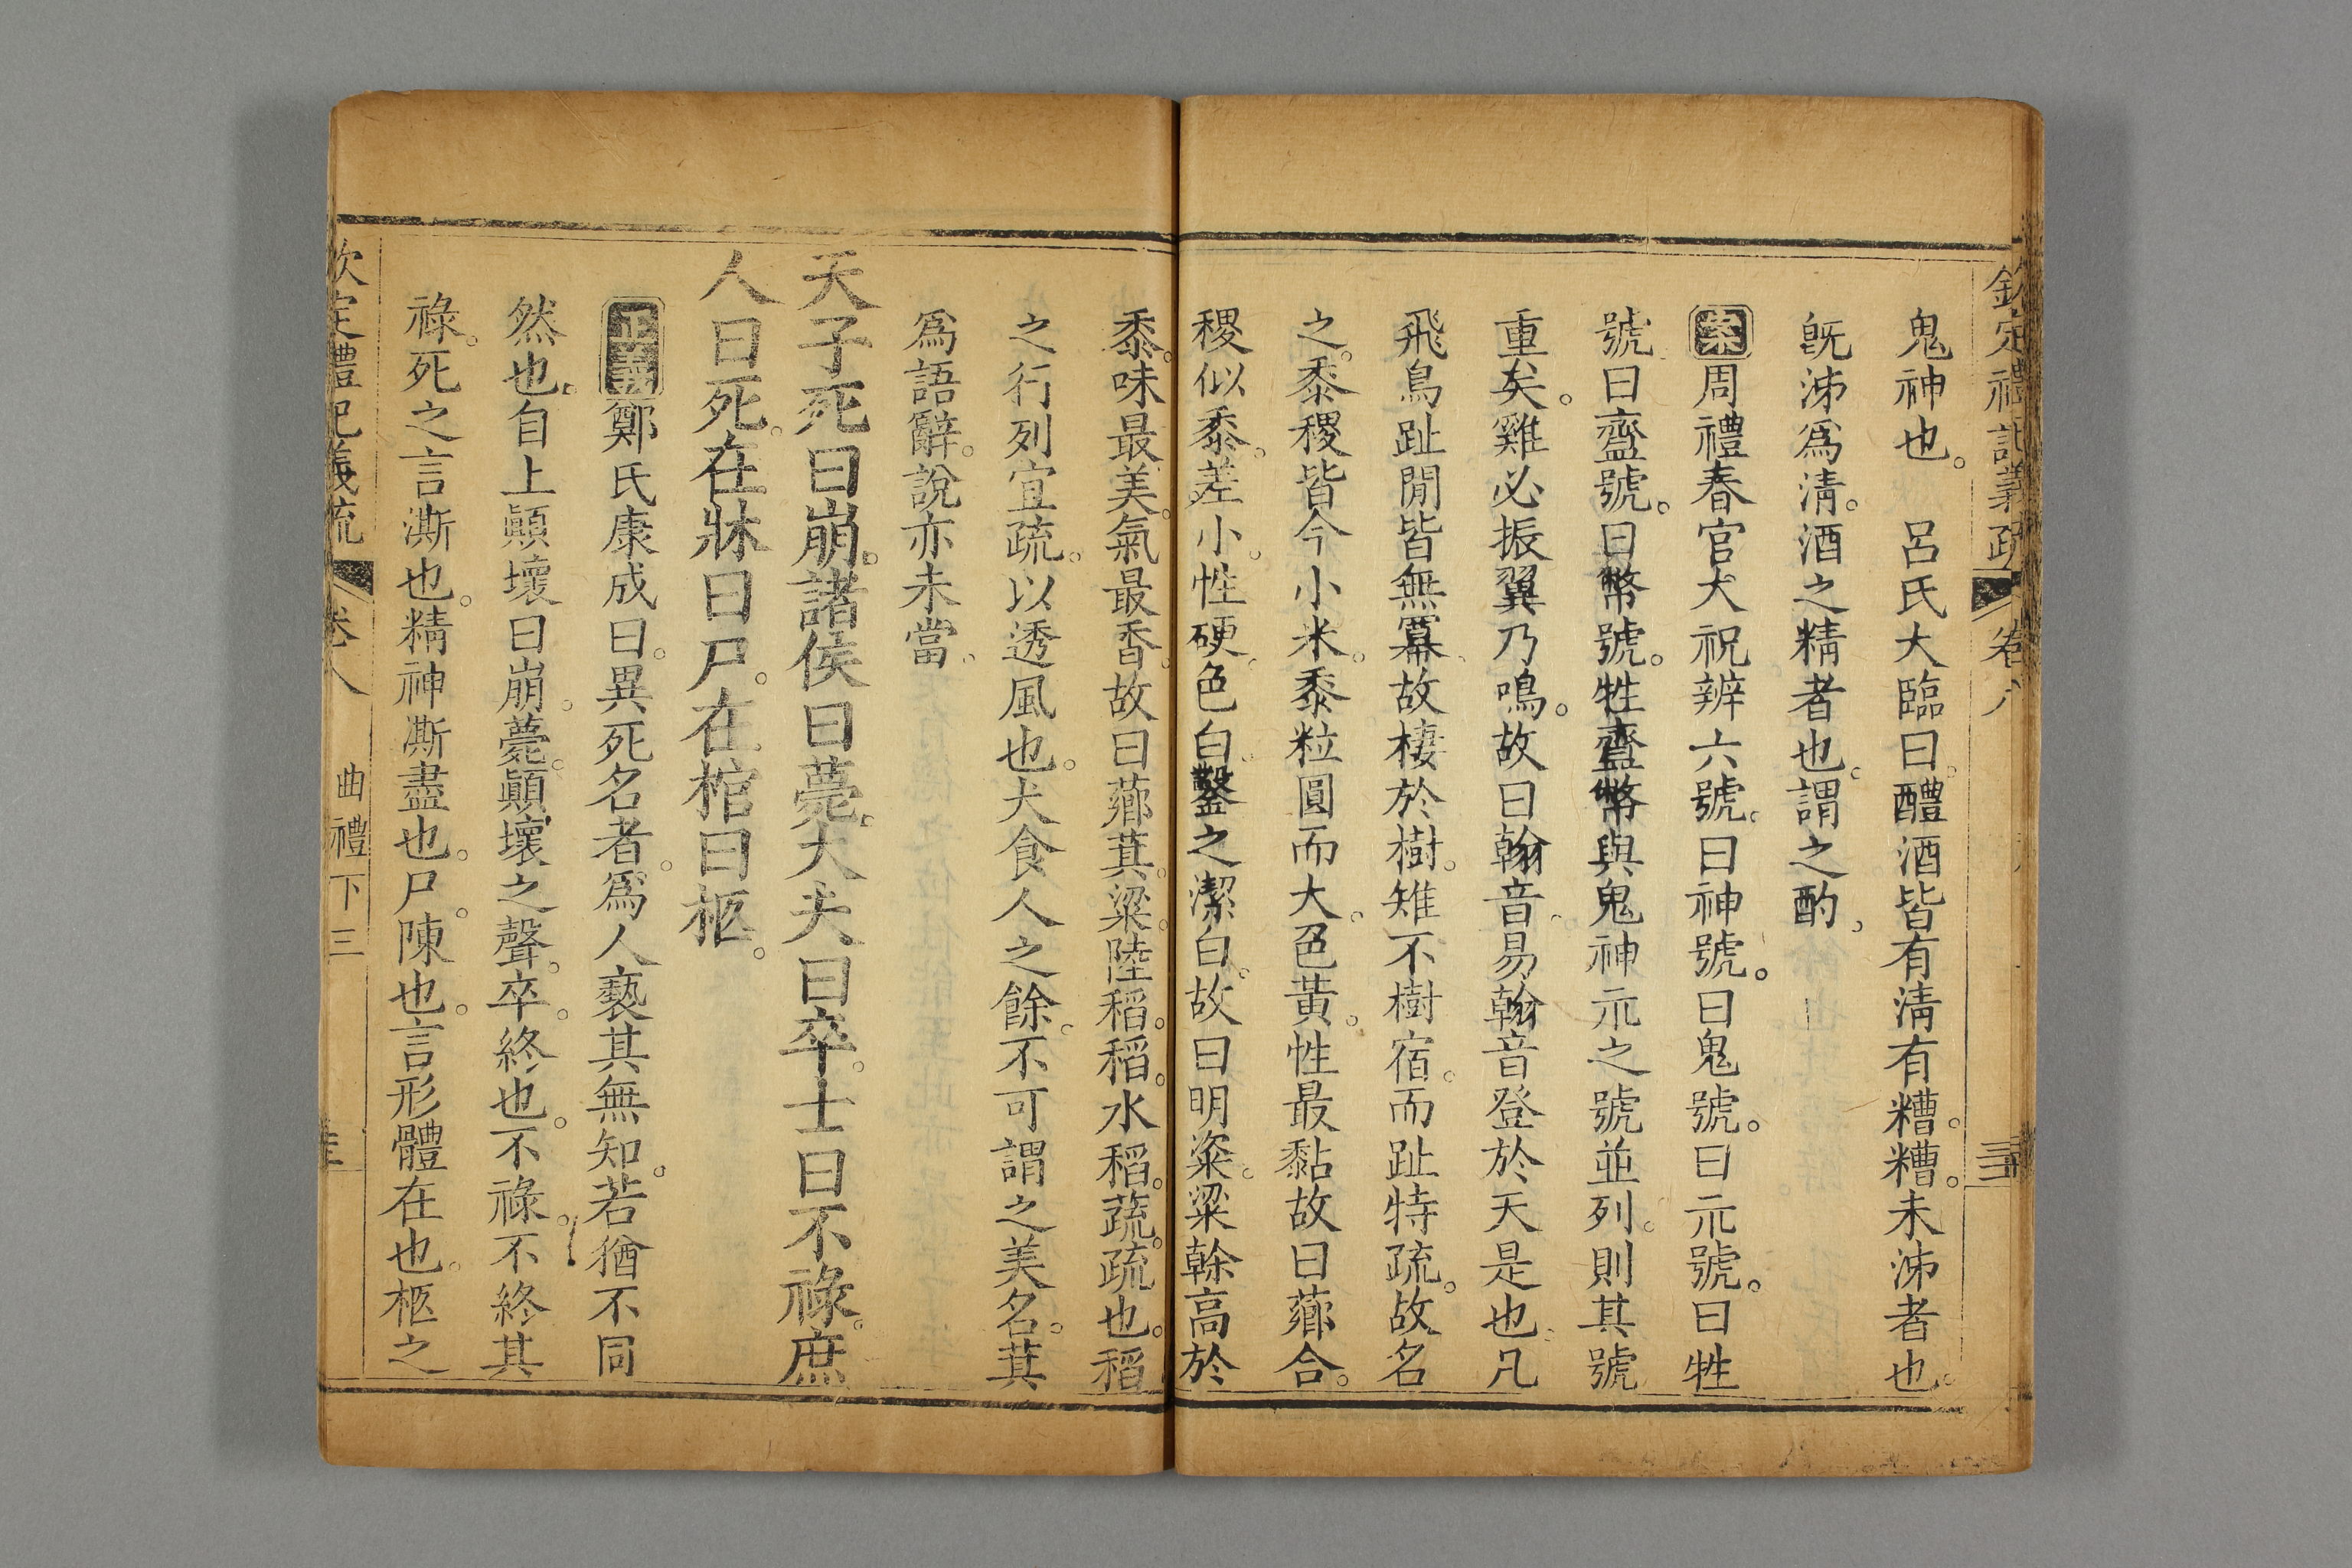 欽定禮記義疏 卷八
鬼神也。 呂氏大臨曰。醴酒皆有淸有糟。糟。未泲者也。
旣泲爲淸。酒之精者也。謂之酌。
案周禮春官大祝辨六號。曰神號。曰鬼號。曰示號。曰牲
號。曰齍號。曰幣號。牲齍幣與鬼神示之號並列。則其號
重矣。雞必振翼乃鳴。故曰翰音。易翰音登於天是也。凡
飛鳥趾閒皆無冪。故棲於樹。雉不樹宿。而趾特疏。故名
之。黍稷皆今小米。黍粒圓而大。色黃。性最黏故曰薌合。
稷似黍。差小。性硬。色白。鑿之潔白。故曰明粢。粱榦高於
黍。味最美。氣最香。故曰薌萁。粱。陸稻。稻。水稻。蔬。疏也。稻
之行列宜疏。以透風也。犬食人之餘。不可謂之美名。萁
爲語辭。說亦未當。
天子死曰崩。諸侯曰薨。大夫曰卒。士曰不祿。庶
人曰死。在牀曰尸。在棺曰柩。
正義鄭氏康成曰。異死名者。爲人褻其無知。若猶不同
然也。自上顚壞曰崩。薨。顚壞之聲。卒。終也。不祿。不終其
祿。死之言澌也。精神澌盡也。尸。陳也。言形體在也。柩之
欽定禮記義疏 卷八 曲禮下三